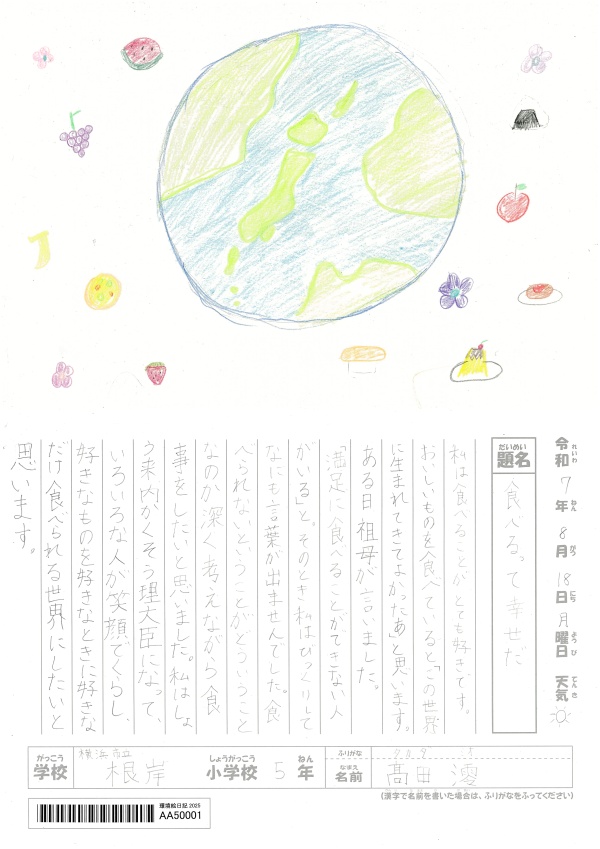 令和7年8月18日月曜日 天気
れいわ ねん がつ にち ようび てんき
だいめい
題名
食べるって幸せだ
私は食べることがとても好きです。
おいしいものを食べていると「この世界
に生まれてきてよかったあ」と思います。
ある日祖母が言いました。
「満足に食べることができない人
がいる」と。そのとき私はびっくりして
なにも言葉が出ませんでした。食
べられないということがどういうこと
なのか深く考えながら食
事をしたいと思いました。私はしょ
う来内かくそう理大臣になって、
いろいろな人が笑顔でくらし、
好きなものを好きなときに好きな
だけ食べられる世界にしたいと
思います。
がっこう しょうがっこう ねん
学校 横浜市立 根岸 小学校 5年
ふりがな
なまえ
名前 髙田
(漢字で名前を書いた場合は、ふりがなをふってください)
環境絵日記 2025
AA50001